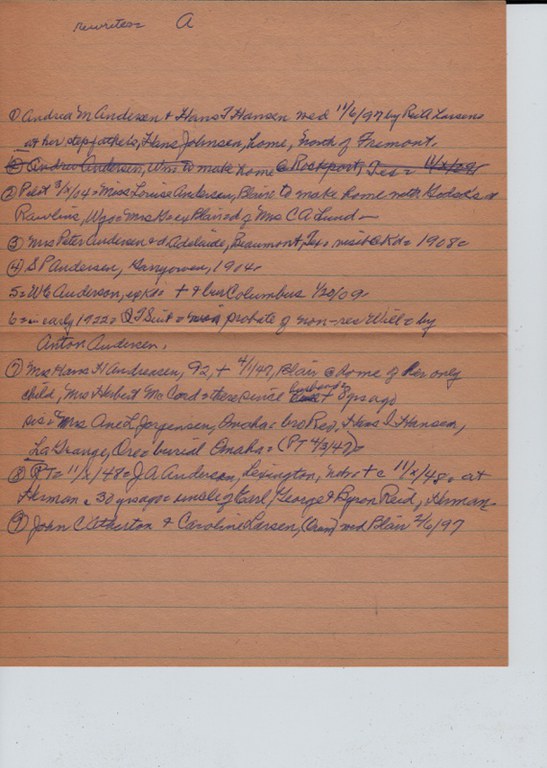 rewrites= A
① Andrea M Andersen & Hans T Hansen wed 11/6/97 by Rev A Larsen
at her stepfather's, Hans Johnsen, home, north of Fremont.
② Andrew Andersen, Wm to make home @ Rockport, Tex=
② Pilot 9/x/14= Miss Louise Andersen, Blair to make home with
Rawlins, Wyo= Mrs G= ex Blair= d of Mrs C A Lund—
③ Mrs Peter Andersen & d. Adelaide, Beaumont, Tex, visit @ Kd= 1908=
④ S P Andersen, Garryowen, 1904.
5= W C Anderson, ex Kd= + @ bro Columbus 1/20/09.
6= early 1922= probate of non-res Will= by
Anton Andersen.
⑦ Mrs Hans H Andreasen, 92, + 4/1/47, Blair @ home of her only
child, Mrs Herbert McCord= there since husband's + 8 yrs ago
sis= Mrs Ane L Jorgensen, Omaha= bro Rev, Hans I Hansen,
La Grange, Ore= burial Omaha= (PT 4/3/47)=
⑧ PT= 11/x/48= J A Anderson, Lexington, Nebr + c 11/x/48= at
Herman c 30 yrs ago= uncle of Earl, George & Byron Reid, Herman=
⑨ John C Atherton & Caroline Larsen, (Oram) wed Blair 2/6/97